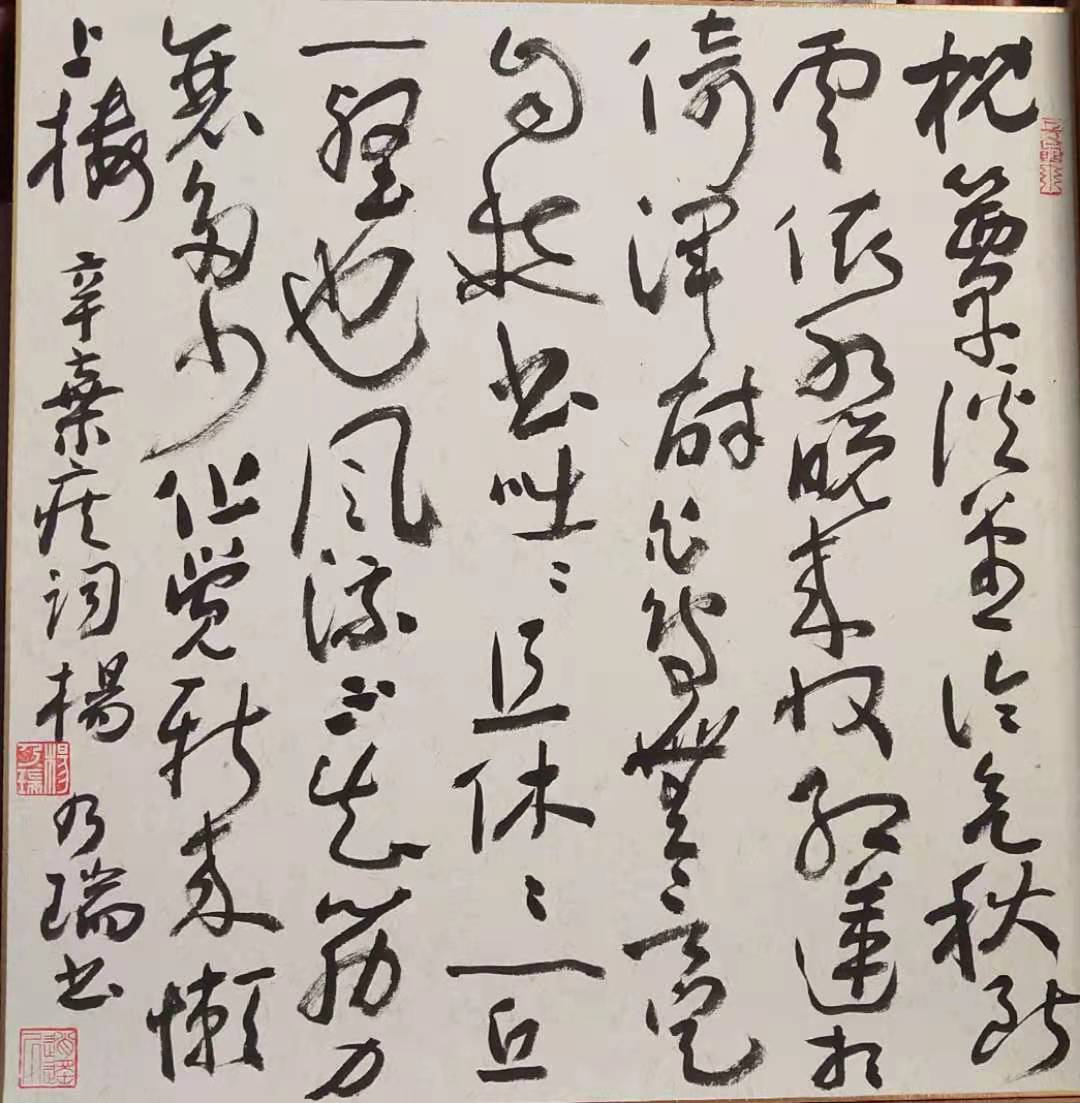 枕簟溪堂冷欲秋断
雲依水晚来收红莲相
倚渾醉白鳥無言定
自愁书咄〻且休〻一丘
一壑也风流不知筋力
衰多少但觉新来懒
上楼 辛棄疾词 楊乃瑞书